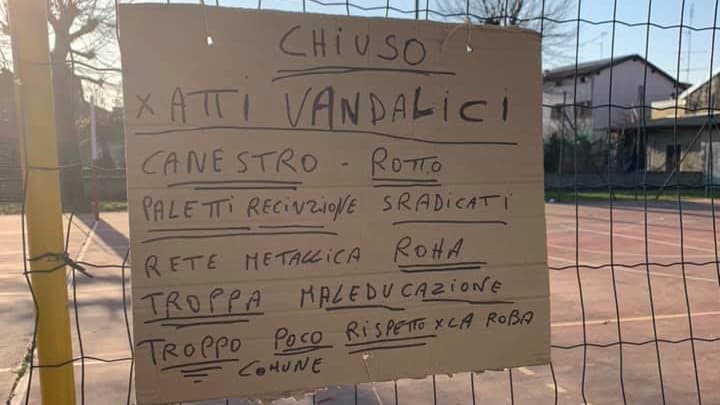 CHIUSO
X ATTI VANDALICI
CANESTRO - ROTTO
PALETTI RECINZIONE SRADICATI
RETE METALLICA ROHA
TROPPA MALEDUCAZIONE
TROPPO POCO RISPETTO X LA ROBA
COMUNE